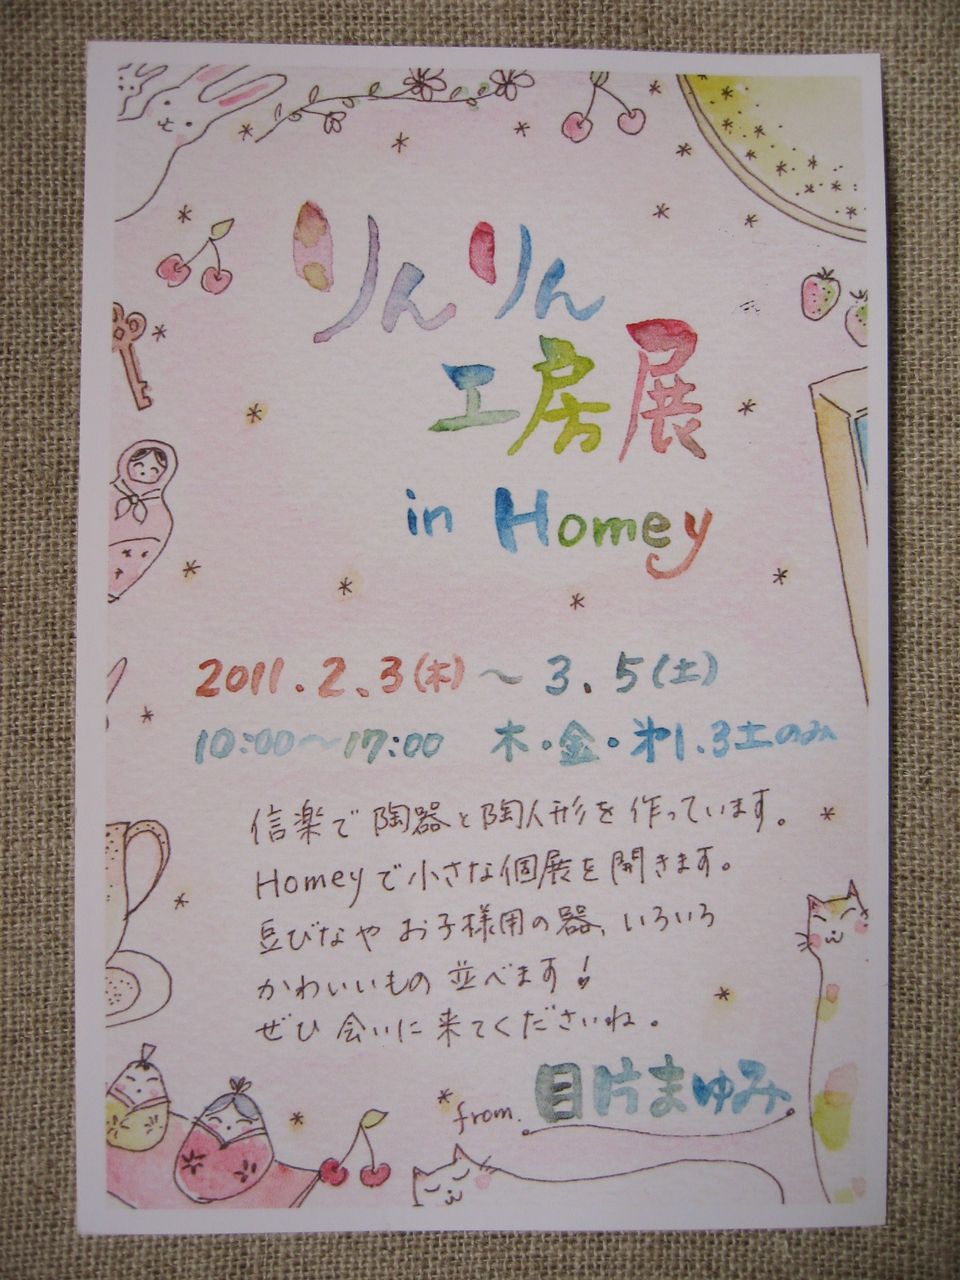 りんりん
工房展
in Homey
2011.2.3(木)～3.5(土)
10:00～17:00 木・金・第1.3土のみ
信楽で陶器と陶人形を作っています。
Homeyで小さな個展を開きます。
豆びなやお子様用の器、いろいろ
かわいいもの並べます!
ぜひ会いに来てくださいね。
from. 目片まゆみ